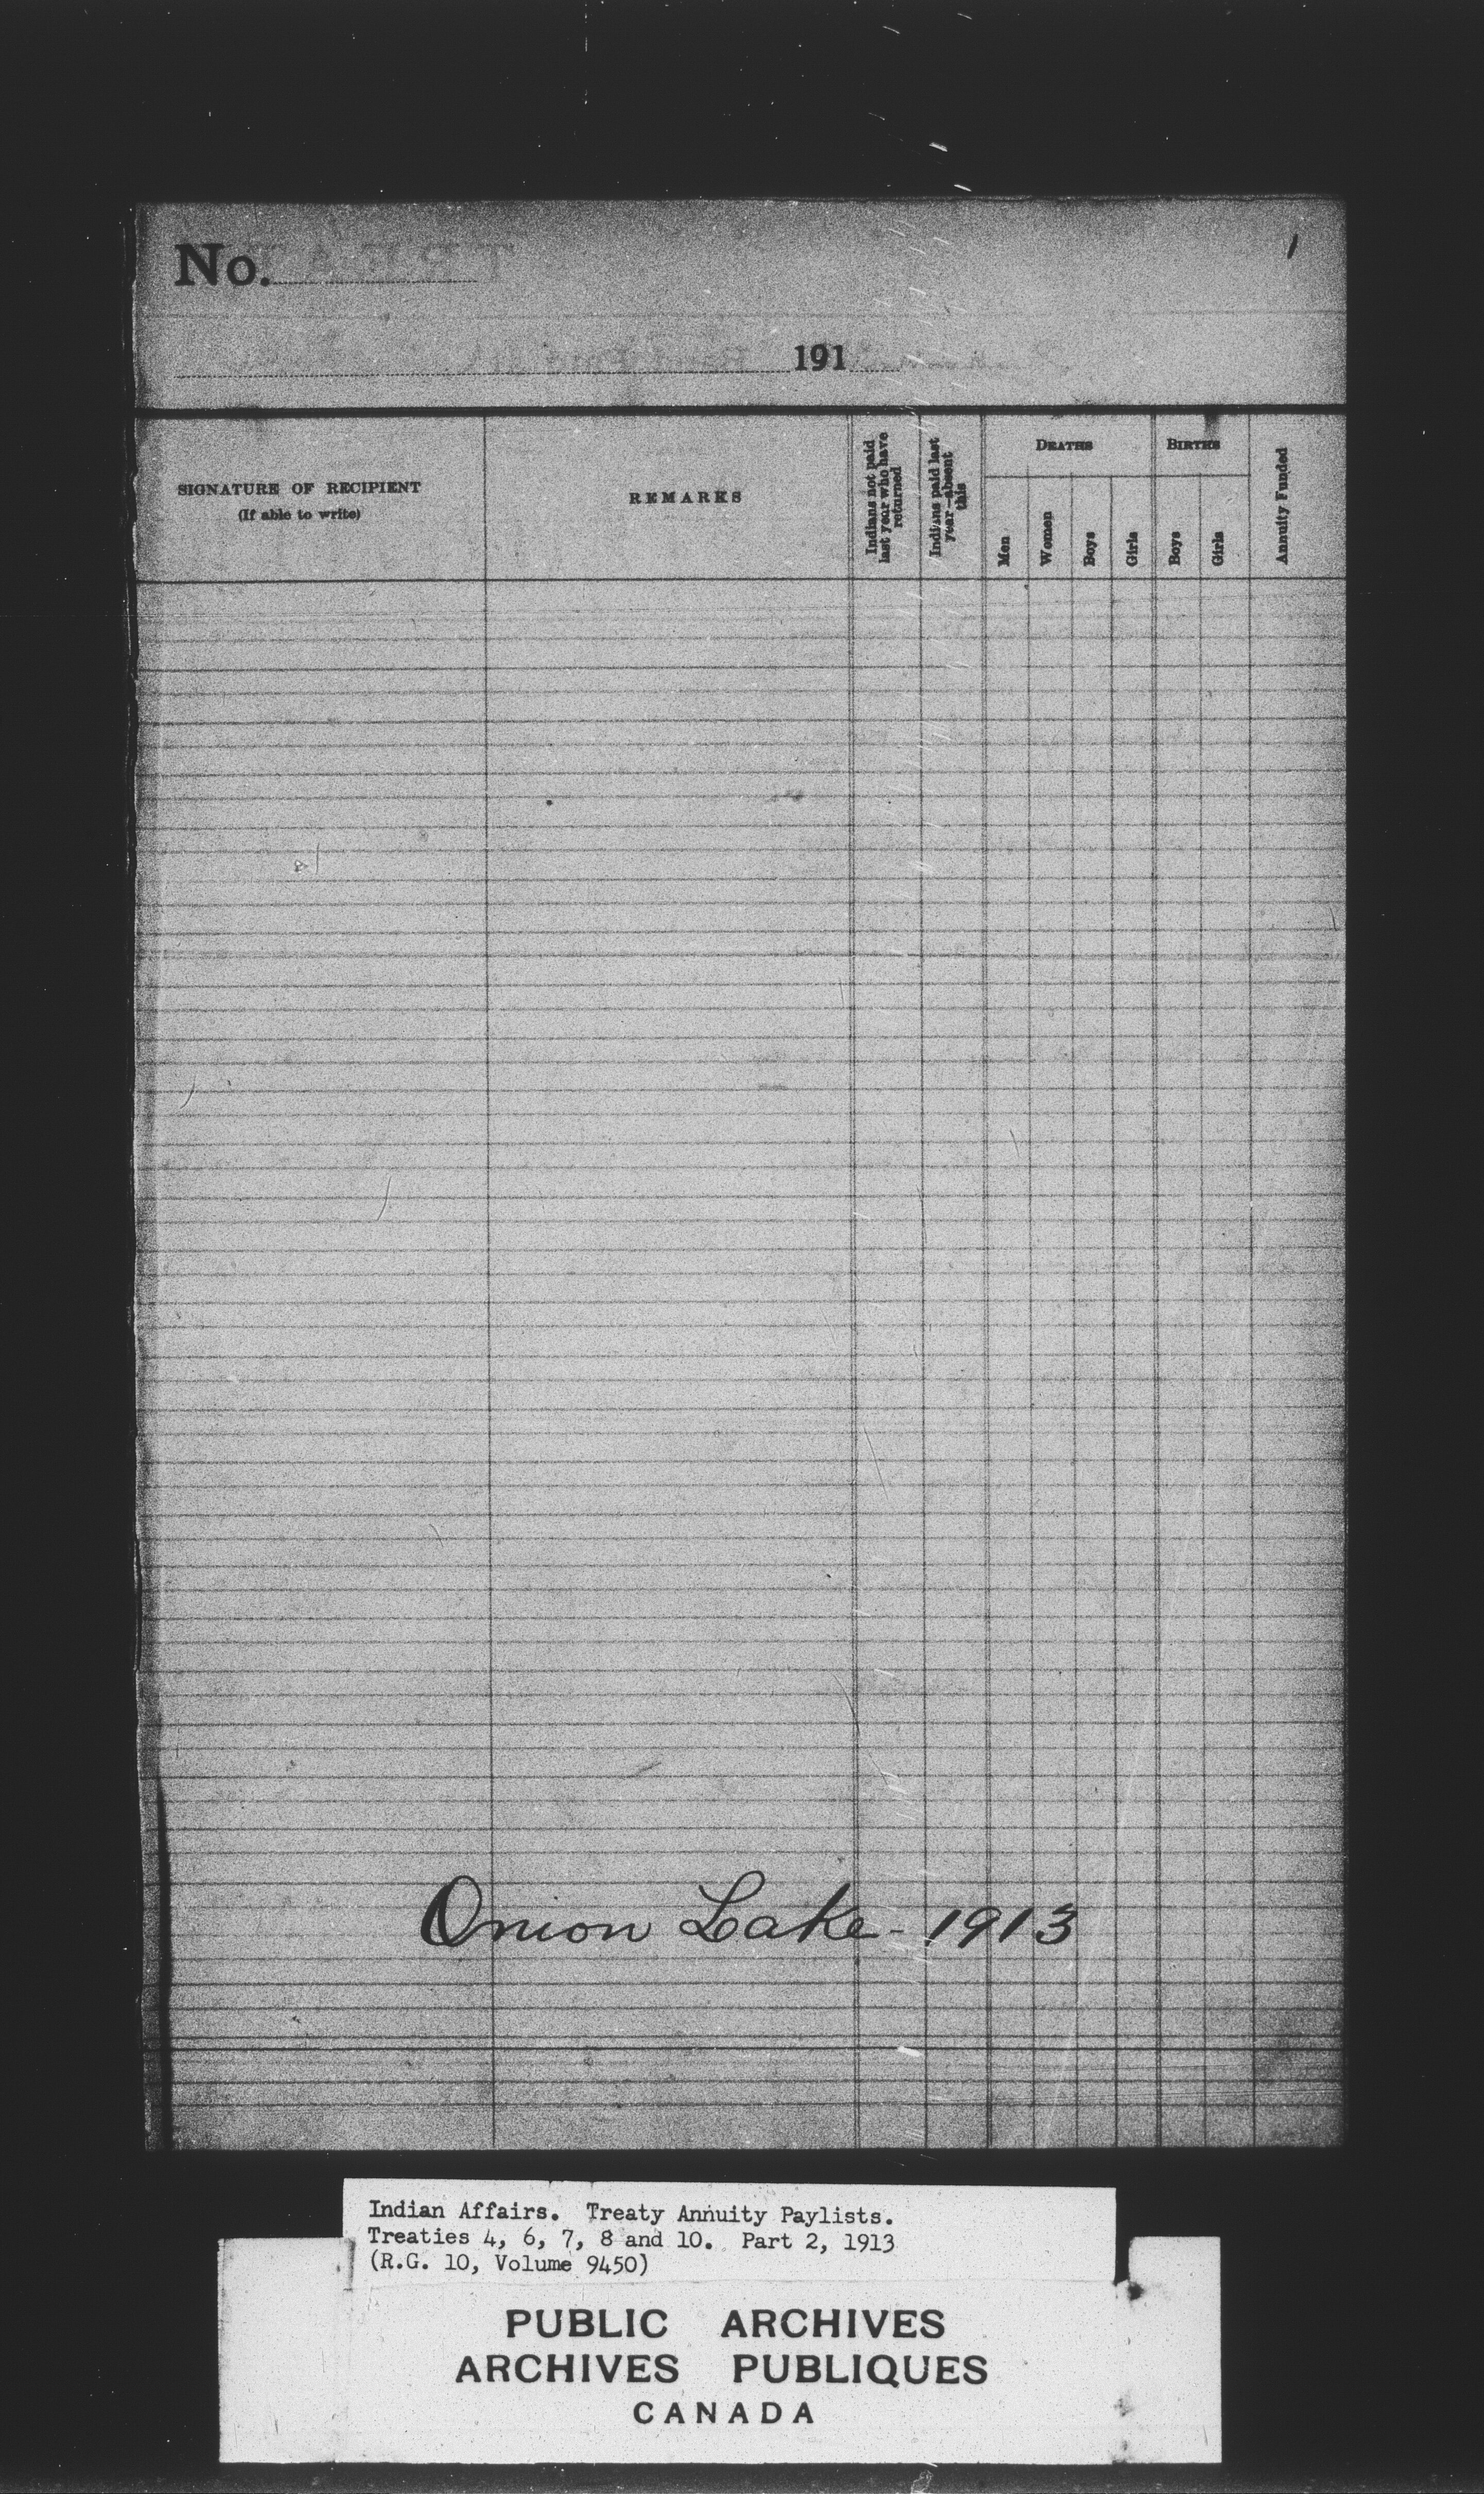 No.
1
191
SIGNATURE OF RECIPIENT
(If able to write)
REMARKS
Indians not paid
last year who have
returned
Indians paid last
year—absent
this
DEATHS
Men
Women
Boys
Girls
BIRTHS
Boys
Girls
Annuity Funded
Onion Lake - 1913
Indian Affairs. Treaty Annuity Paylists.
Treaties 4, 6, 7, 8 and 10. Part 2, 1913
(R.G. 10, Volume 9450)
PUBLIC ARCHIVES
ARCHIVES PUBLIQUES
CANADA